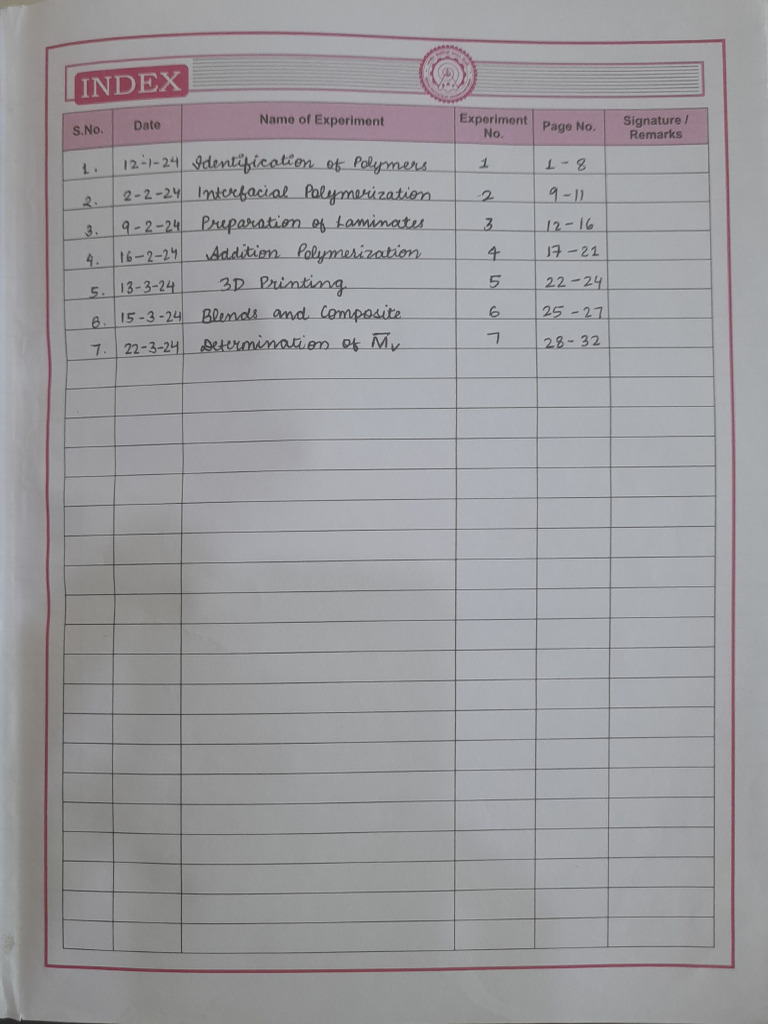 INDEX
S.No. Date Name of Experiment Experiment No. Page No. Signature / Remarks
1. 12-1-24 Identification of Polymers 1 1-8
2. 2-2-24 Interfacial Polymerization 2 9-11
3. 9-2-24 Preparation of Laminates 3 12-16
4. 16-2-24 Addition Polymerization 4 17-21
5. 13-3-24 3D Printing 5 22-24
6. 15-3-24 Blends and Composite 6 25-27
7. 22-3-24 Determination of M̅v 7 28-32